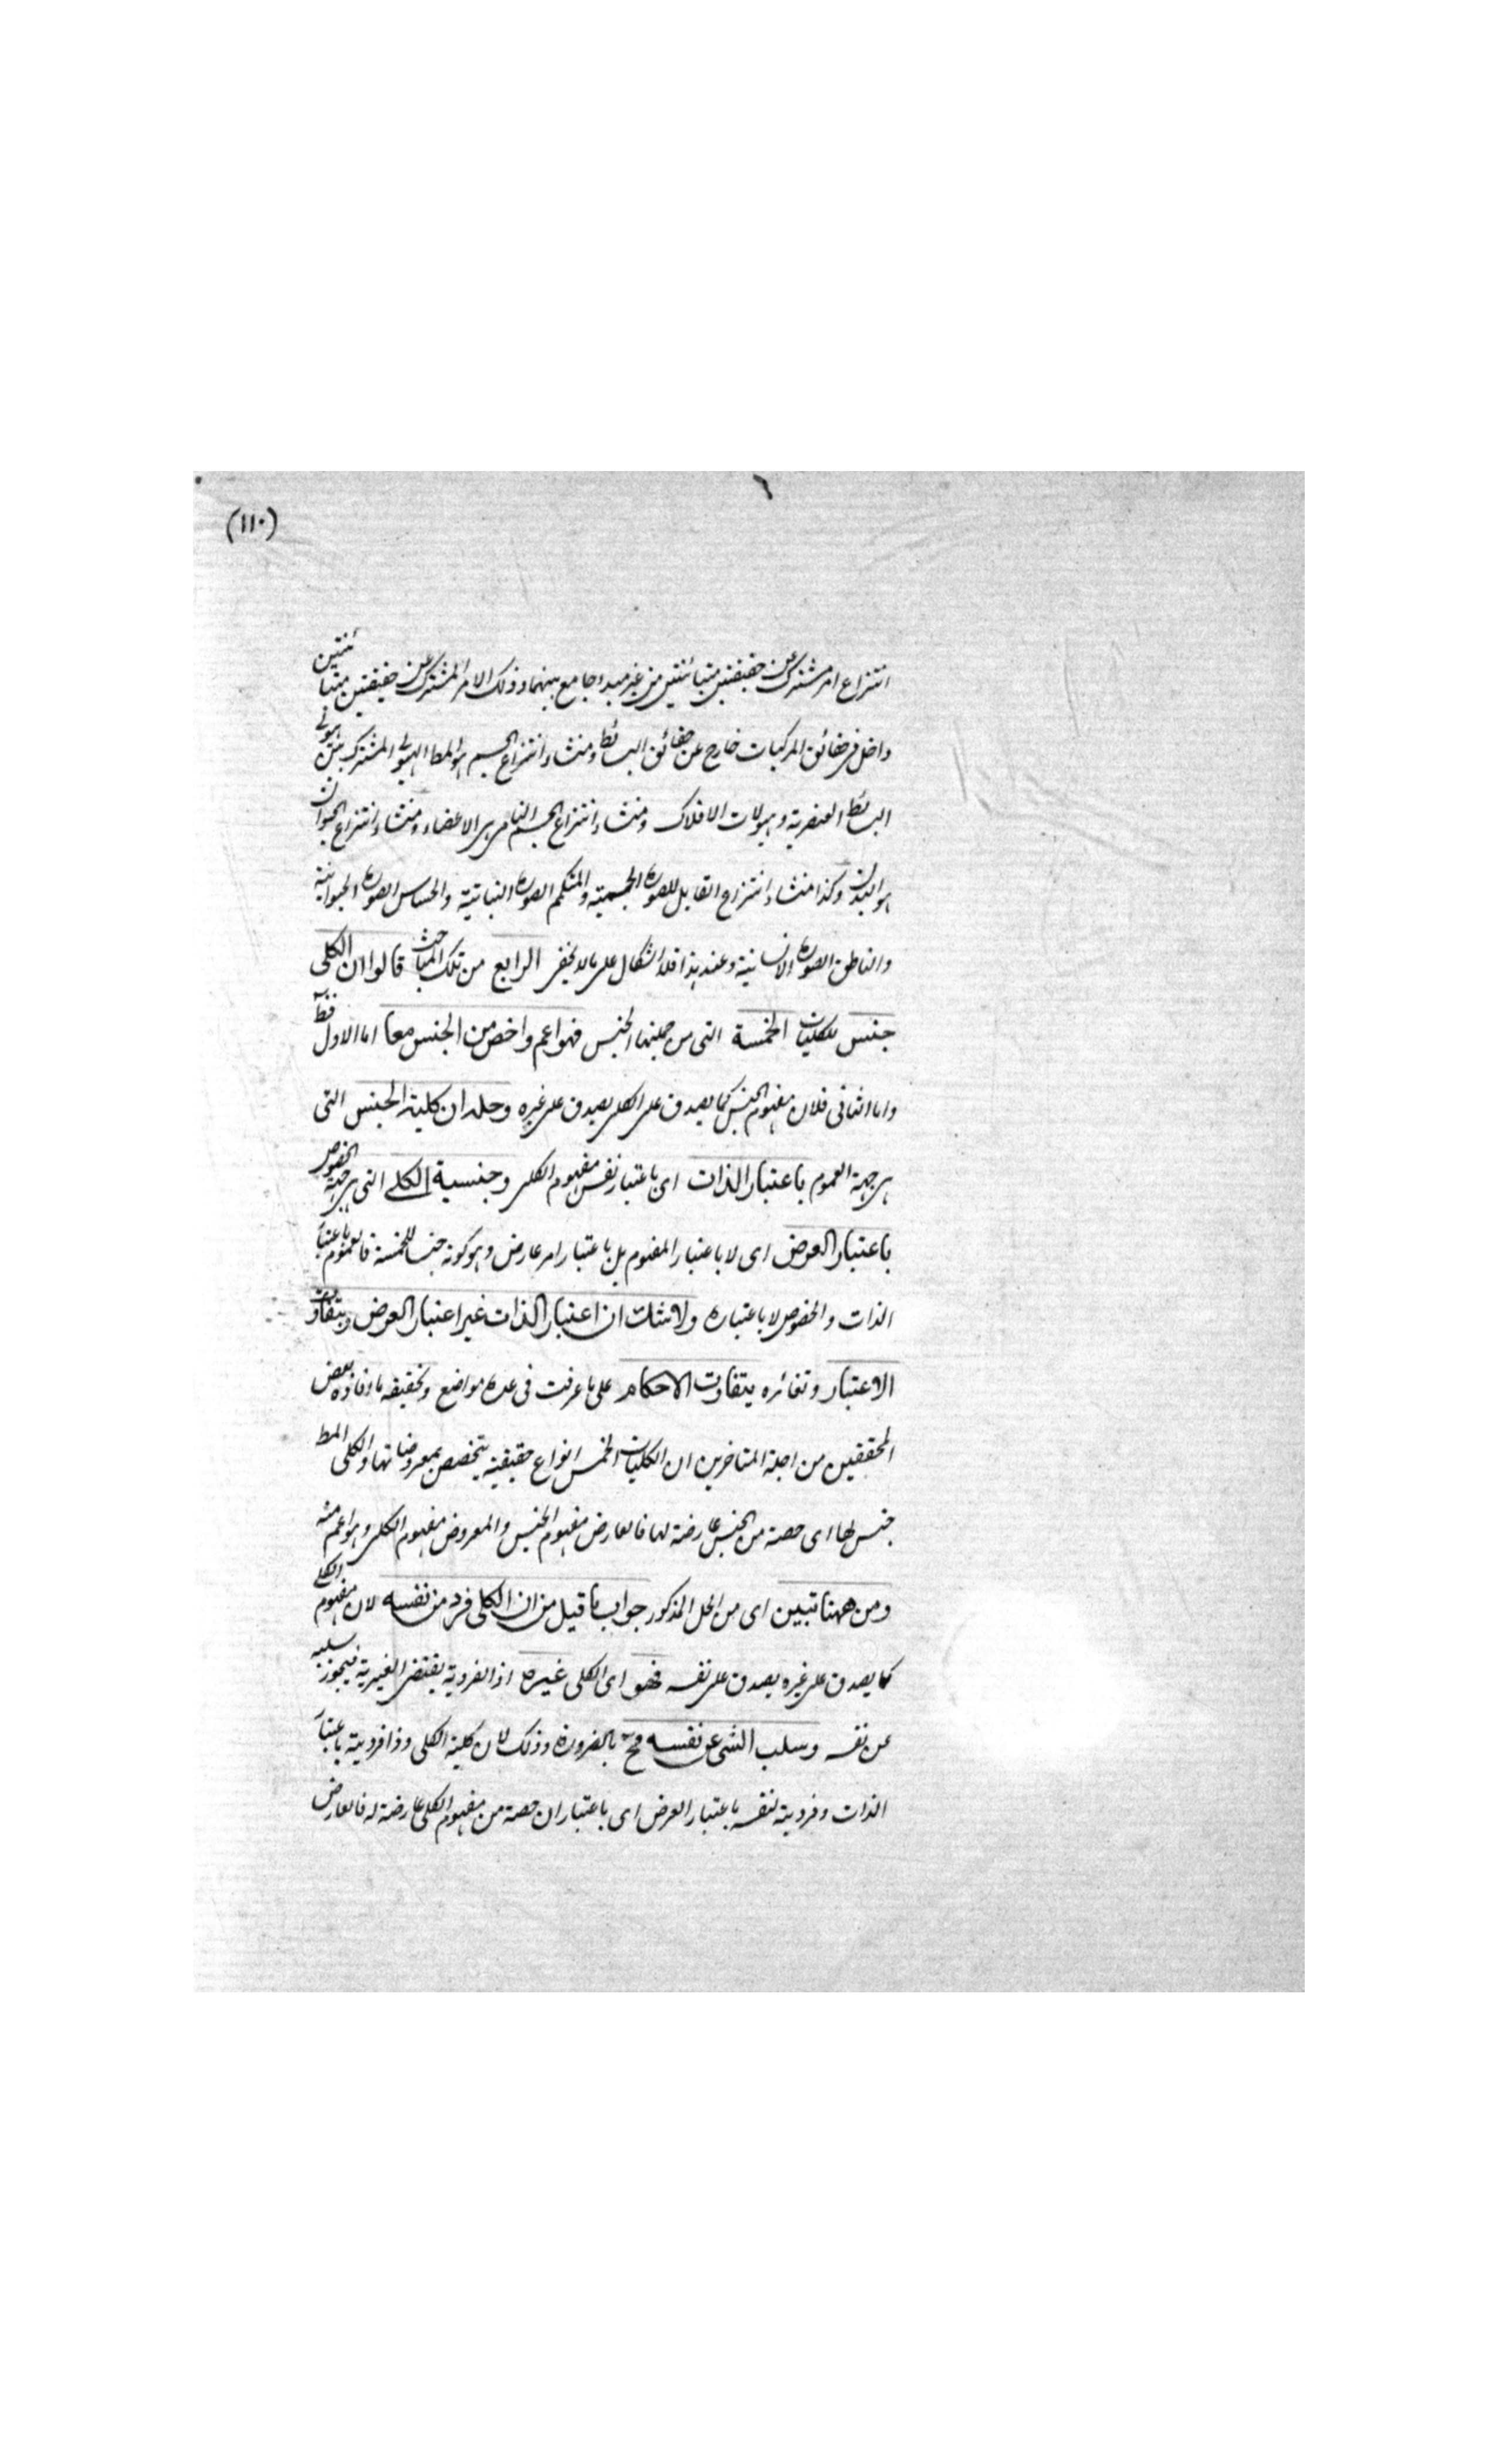 (١١٠)
انتزاع امر مشترك عن حقيقتين متبائنتين من غير مبدء جامع بينهما وذلك الامر المشترك عن حقيقتين متبائنتين
داخل فى حقائق المركبات خارج عن حقائق البسائط ومنشاء انتزاع الجسم هو المط الهيولى المشترك بين هيولى
البسائط العنصرية وهيولات الافلاك ومنشاء انتزاع الجسم النامى هى الاعضاء ومنشاء انتزاع الحيوان
هو البدن وكذا منشاء انتزاع القابل للصورة الجسمية والمتكمم الصورة النباتية والحساس الصورة الحيوانية
والناطق الصورة الانسانية وعند هذا فلا اشكال على ما لا يخفى الرابع من تلك المباحث قالوا ان الكلى
جنس للكليات الخمسة التى من جملتها الجنس فهو اعم واخص من الجنس معا اما الاول فظ
واما الثانى فلان مفهوم الجنس كما يصدق على الكلى يصدق على غيره وحله ان كلية الجنس التى
هى جهة العموم باعتبار الذات اى باعتبار نفس مفهوم الكلى وجنسية الكلى التى هى جهة الخصوص
باعتبار العرض اى لا باعتبار المفهوم بل باعتبار امر عارض وهو كونه جنسا للخمسة فالعموم باعتبار
الذات والخصوص لا باعتباره ولا شك ان اعتبار الذات غير اعتبار العرض وبتفاوت
الاعتبار وتغائره يتفاوت الاحكام على ما عرفت فى عدة مواضع وتحقيقه ما افاده بعض
المحققين من اجلة المتاخرين ان الكليات الخمس انواع حقيقية يتخصص بمعروضاتها والكلى المط
جنس لها اى حصة من الجنس عارضة لها فالعارض مفهوم الجنس والمعروض مفهوم الكلى وهو اعم منه
ومن ههنا تبين اى من الحل المذكور جواب ما قيل من ان الكلى فرد من نفسه لان مفهوم الكلى
كما يصدق على غيره يصدق على نفسه فهو اى الكلى غيره اذ الفردية يقتضى الغيرية فيجوز سلبه
عن نفسه وسلب الشى عن نفسه مح بالضرورة وذلك لان كلية الكلى وذا فردية باعتبار
الذات وفردية لنفسه باعتبار العرض اى باعتبار ان حصة من مفهوم الكلى عارضة له فالعارض